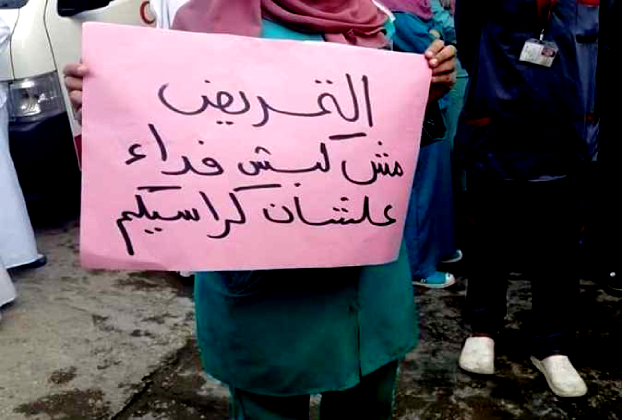 التمريض
مش كبش فداء
علشان كراسيكم